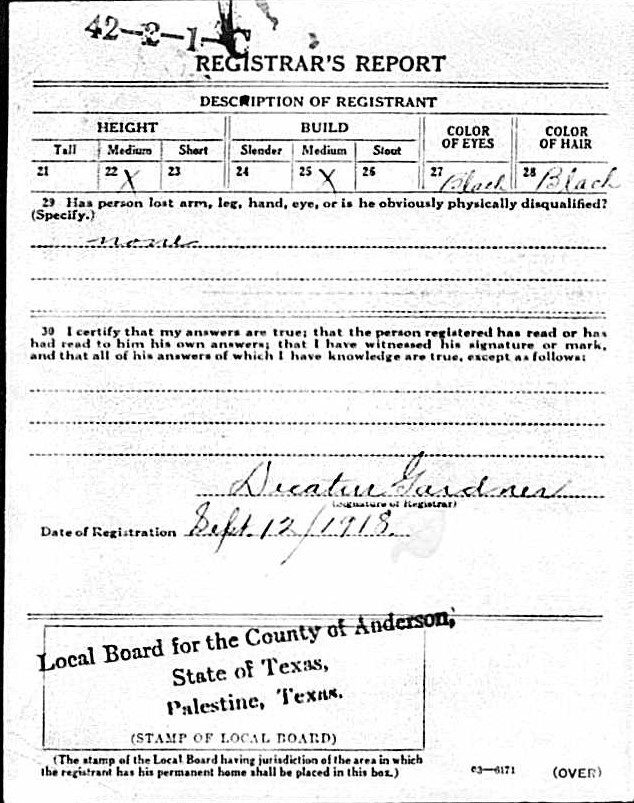 42-2-1-C
REGISTRAR'S REPORT
DESCRIPTION OF REGISTRANT
HEIGHT BUILD COLOR OF EYES COLOR OF HAIR
Tall Medium Short Slender Medium Stout
21 22 X 23 24 25 X 26 27 Black 28 Black
29 Has person lost arm, leg, hand, eye, or is he obviously physically disqualified?
(Specify.)
none
30 I certify that my answers are true; that the person registered has read or has
had read to him his own answers; that I have witnessed his signature or mark,
and that all of his answers of which I have knowledge are true, except as follows:
Decatur Gardner
(Signature of Registrar)
Date of Registration Sept. 12/1918.
Local Board for the County of Anderson,
State of Texas,
Palestine, Texas.
(STAMP OF LOCAL BOARD)
(The stamp of the Local Board having jurisdiction of the area in which
the registrant has his permanent home shall be placed in this box.)
03—6171 (OVER)